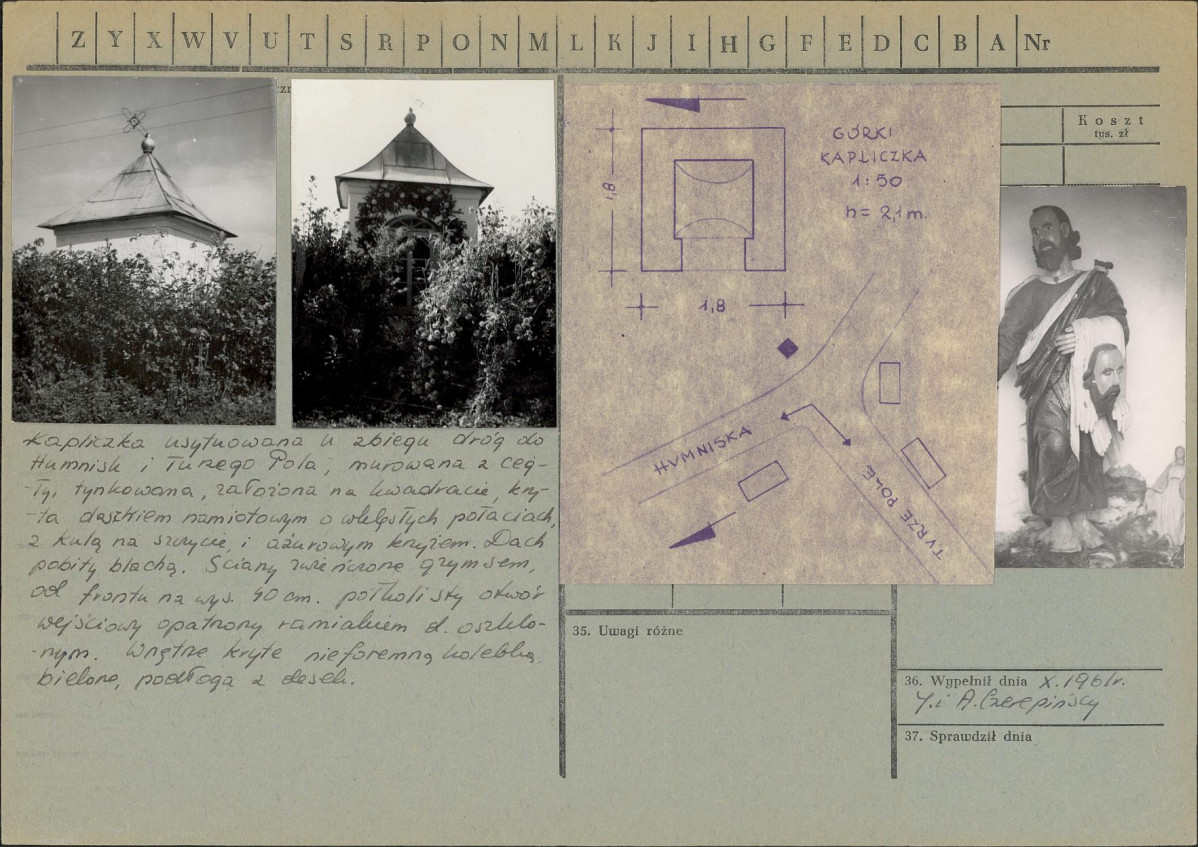 Z Y X W V U T S R P O N M L K J I H G F E D C B A Nr
Koszt
tys. zł
GÓRKI
KAPLICZKA
1:50
h = 2,1 m.
1,8
1,8
HUMNISKA
TURZE POLE
Kapliczka usytuowana u zbiegu dróg do
Humnisk i Turzego Pola, murowana z ceg-
-ły, tynkowana, założona na kwadracie, kry-
-ta daszkiem namiotowym o wklęsłych połaciach,
z kulą na szczycie, i ażurowym krzyżem. Dach
pobity blachą. Ściany zwieńczone gzymsem,
od frontu na wys. 40 cm. półkolisty otwór
wejściowy opatrzony ramiakiem d. oszklo-
-nym. Wnętrze kryte nieforemną kolebką,
bielone, podłoga z desek.
35. Uwagi różne
36. Wypełnił dnia X. 1961r.
J. i A. Czerepińscy
37. Sprawdził dnia